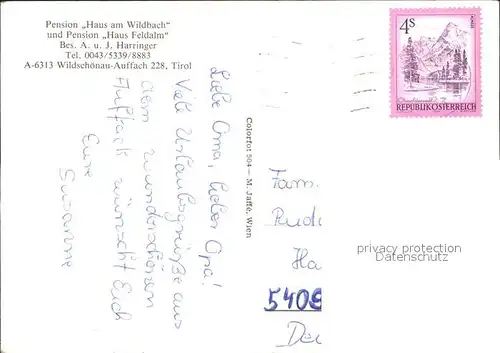 Pension „Haus am Wildbach“
und Pension „Haus Feldalm“
Bes. A. u. J. Harringer
Tel. 0043/5339/8883
A-6313 Wildschönau-Auffach 228, Tirol
Liebe Oma, lieber Opa!
Viele Urlaubsgrüße aus
dem wunderschönen
Auffach wünscht Euch
Eure
Susanne
Colorfot 504 — M. Jaffé, Wien
4S
REPUBLIK ÖSTERREICH
Fam.
Rudi
Ha
5408
privacy protection
Datenschutz